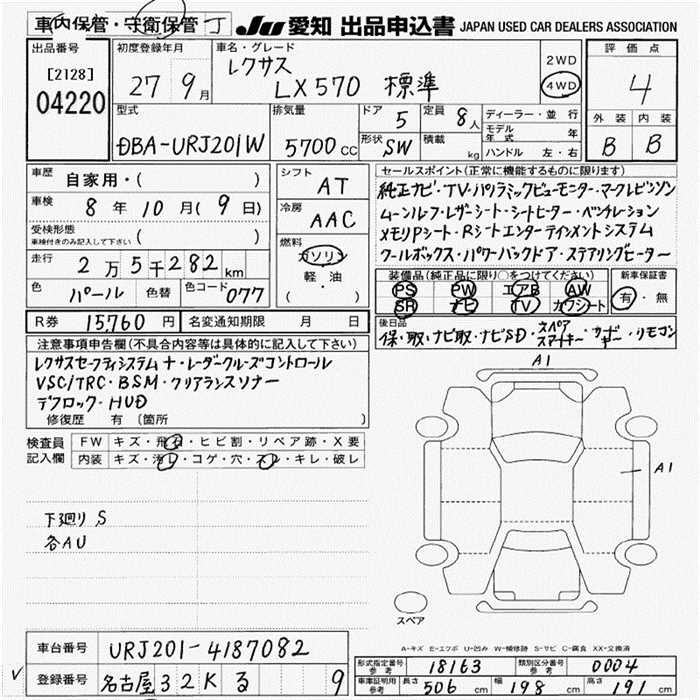 車内保管・守衛保管 丁 JU 愛知 出品申込書 JAPAN USED CAR DEALERS ASSOCIATION
出品番号 初度登録年月 車名・グレード 評価点
[2128] 27 9月 レクサス 2WD
04220 LX570 標準 4WD 4
型式 排気量 ドア 5 定員 8人 ディーラー・並行 外装 内装
DBA-URJ201W 5700CC 形状 SW 積載 kg モデル年式 年 B B
ハンドル 左・右
車歴 自家用・( ) シフト AT セールスポイント(正常に機能するものに限ります)
車検 8年10月(9日) 冷房 AAC 純正ナビ・TV・パノラミックビューモニター・マークレビンソン
受検形態 ムーンルーフ・レザーシート・シートヒーター・ベンチレーション
車検付きのみ記入して下さい ( ) 燃料 メモリPシート・Rシートエンターテインメントシステム
走行 2万5千282km ガソリン クールボックス・パワーバックドア・ステアリングヒーター
色 パール 色替 色コード 077 軽・油 ( )
装備品(純正品に限り○をつけてください) 新車保証書
PS PW エアB AW 有・無
SR ナビ TV カワシート
R券 15,760円 名変通知期限 月 日
後日品 保・取・ナビ取・ナビSD・スペアスマートキー・カードキー・リモコン
注意事項申告欄(不具合内容等は具体的に記入して下さい)
レクサスセーフティシステム+・レーダークルーズコントロール
VSC/TRC・BSM・クリアランスソナー
デフロック・HUD
修復歴 有 〔箇所 〕
検査員 FW キズ・飛石・ヒビ割・リペア跡・X要
記入欄 内装 キズ・汚レ・コゲ・穴・スレ・キレ・破レ
A1
A1
下廻り S
各AU
スペア
A-キズ E-エクボ U-凹み W-補修跡 S-サビ C-腐食 XX-交換済
車台番号 URJ201-4187082
形式指定番号 参考 18163 類別区分番号 参考 0004
V 登録番号 名古屋 32K る 9
車庫証明用 参考 長さ 506cm 幅 198cm 高さ 191cm